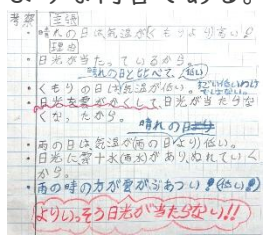 ような内容である。
考察 主張
・晴れの日は気温がくもりより高い!
理由
・日光が当たっているから。
晴れの日と比べて、(低い)
・くもりの日は気温が低い。
・日光を雲がかくして、日光が当たらな
くなったから。
晴れの日
・雨の日は気温が(雨の日より)低い。
・日光に雲や水(雨水)がありぬれていく
から。
・雨の時の方が雲がぶあつい!(低い!)
よりいっそう日光が当たらない!!